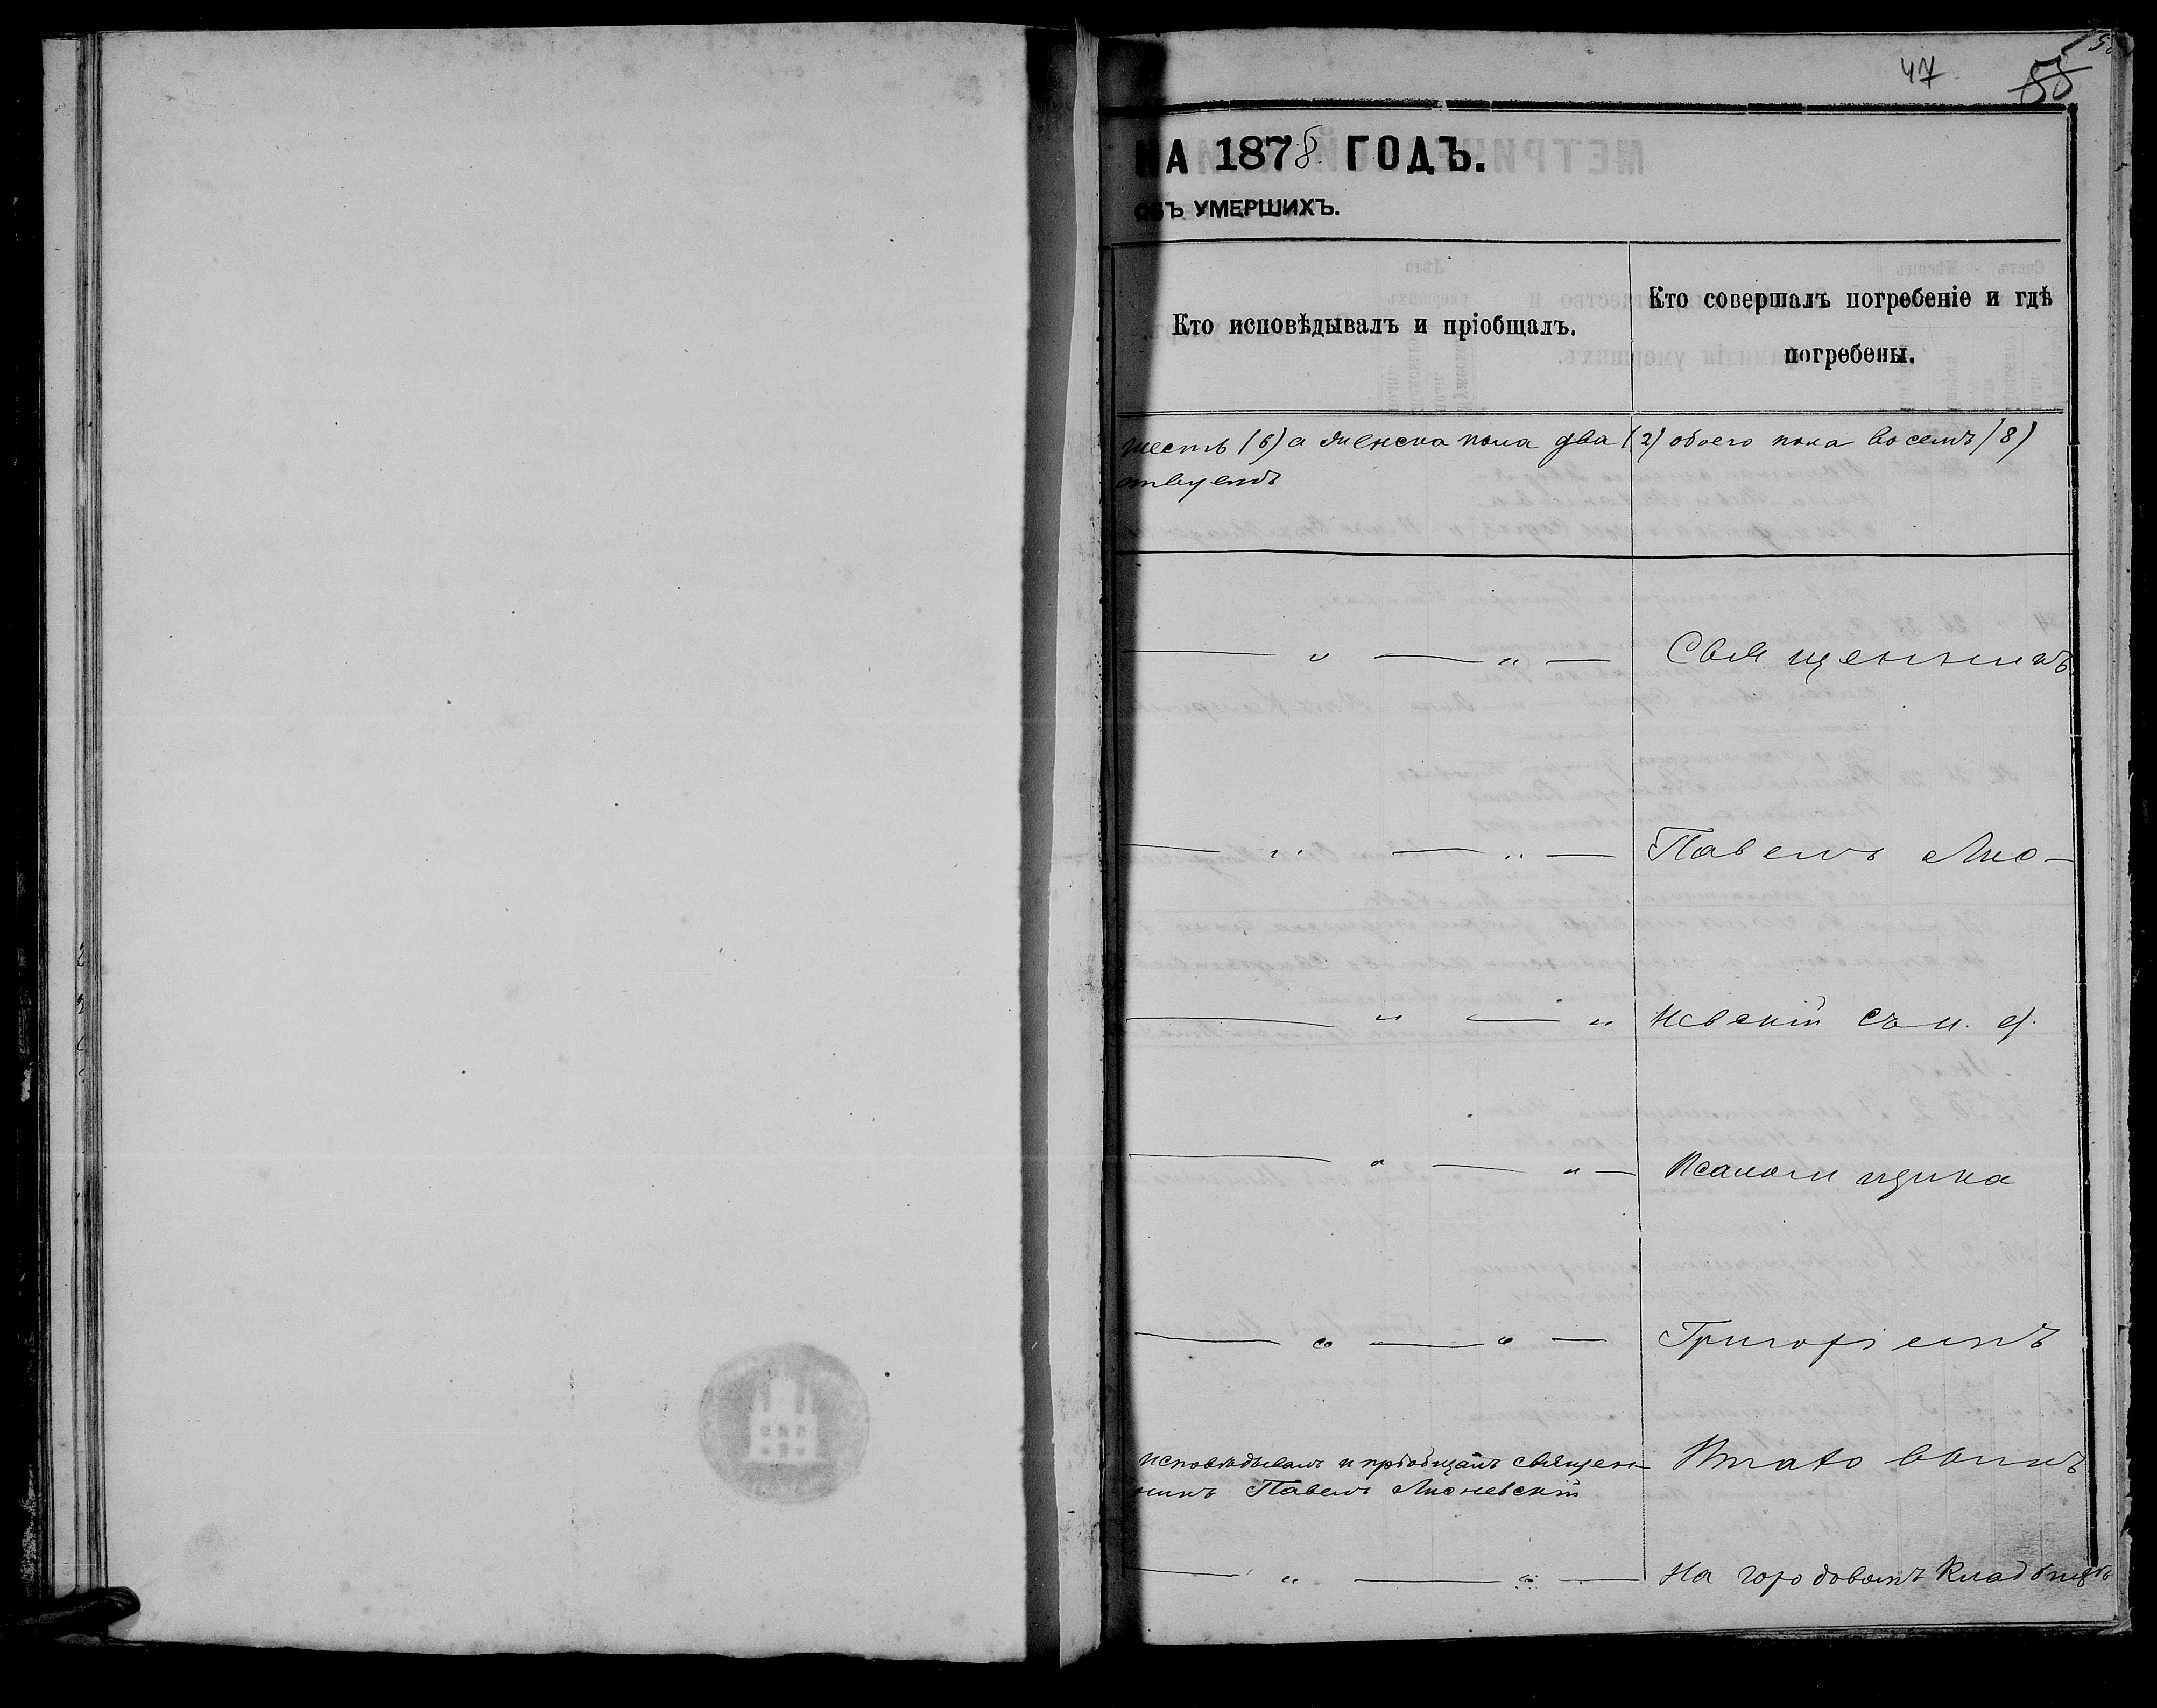 47 55
НА 1878 ГОДЪ.
ОБЪ УМЕРШИХЪ.
Кто исповѣдывалъ и пріобщалъ.
Кто совершалъ погребеніе и гдѣ
погребены.
шесть (6) а женска пола два (2) обоего пола восемь (8)
ствуемъ
— „ — „ — Священникъ
— „ — „ — Павелъ Лио-
— „ — „ невскій съ и. д.
— „ — „ — Псаломщика
— „ — „ — Григоріемъ
исповѣдывалъ и пріобщалъ священ-
никъ Павелъ Лионевскій
— „ — „ — На городовомъ кладбищѣ